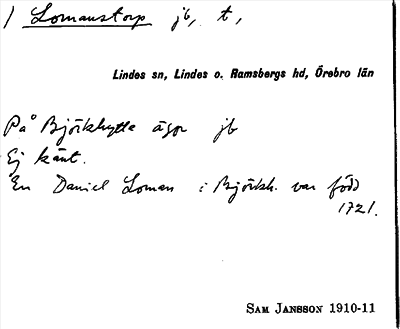 / Lomanstorp jb, t,
Lindes sn, Lindes o. Ramsbergs hd, Örebro län
På Björkhytte ägor jb
Ej känt.
En Daniel Loman i Björkh. var född
1721.
SAM JANSSON 1910-11